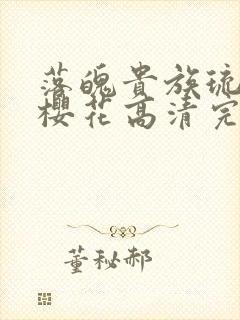 落魄贵族琉
樱花高清完
董秘郝